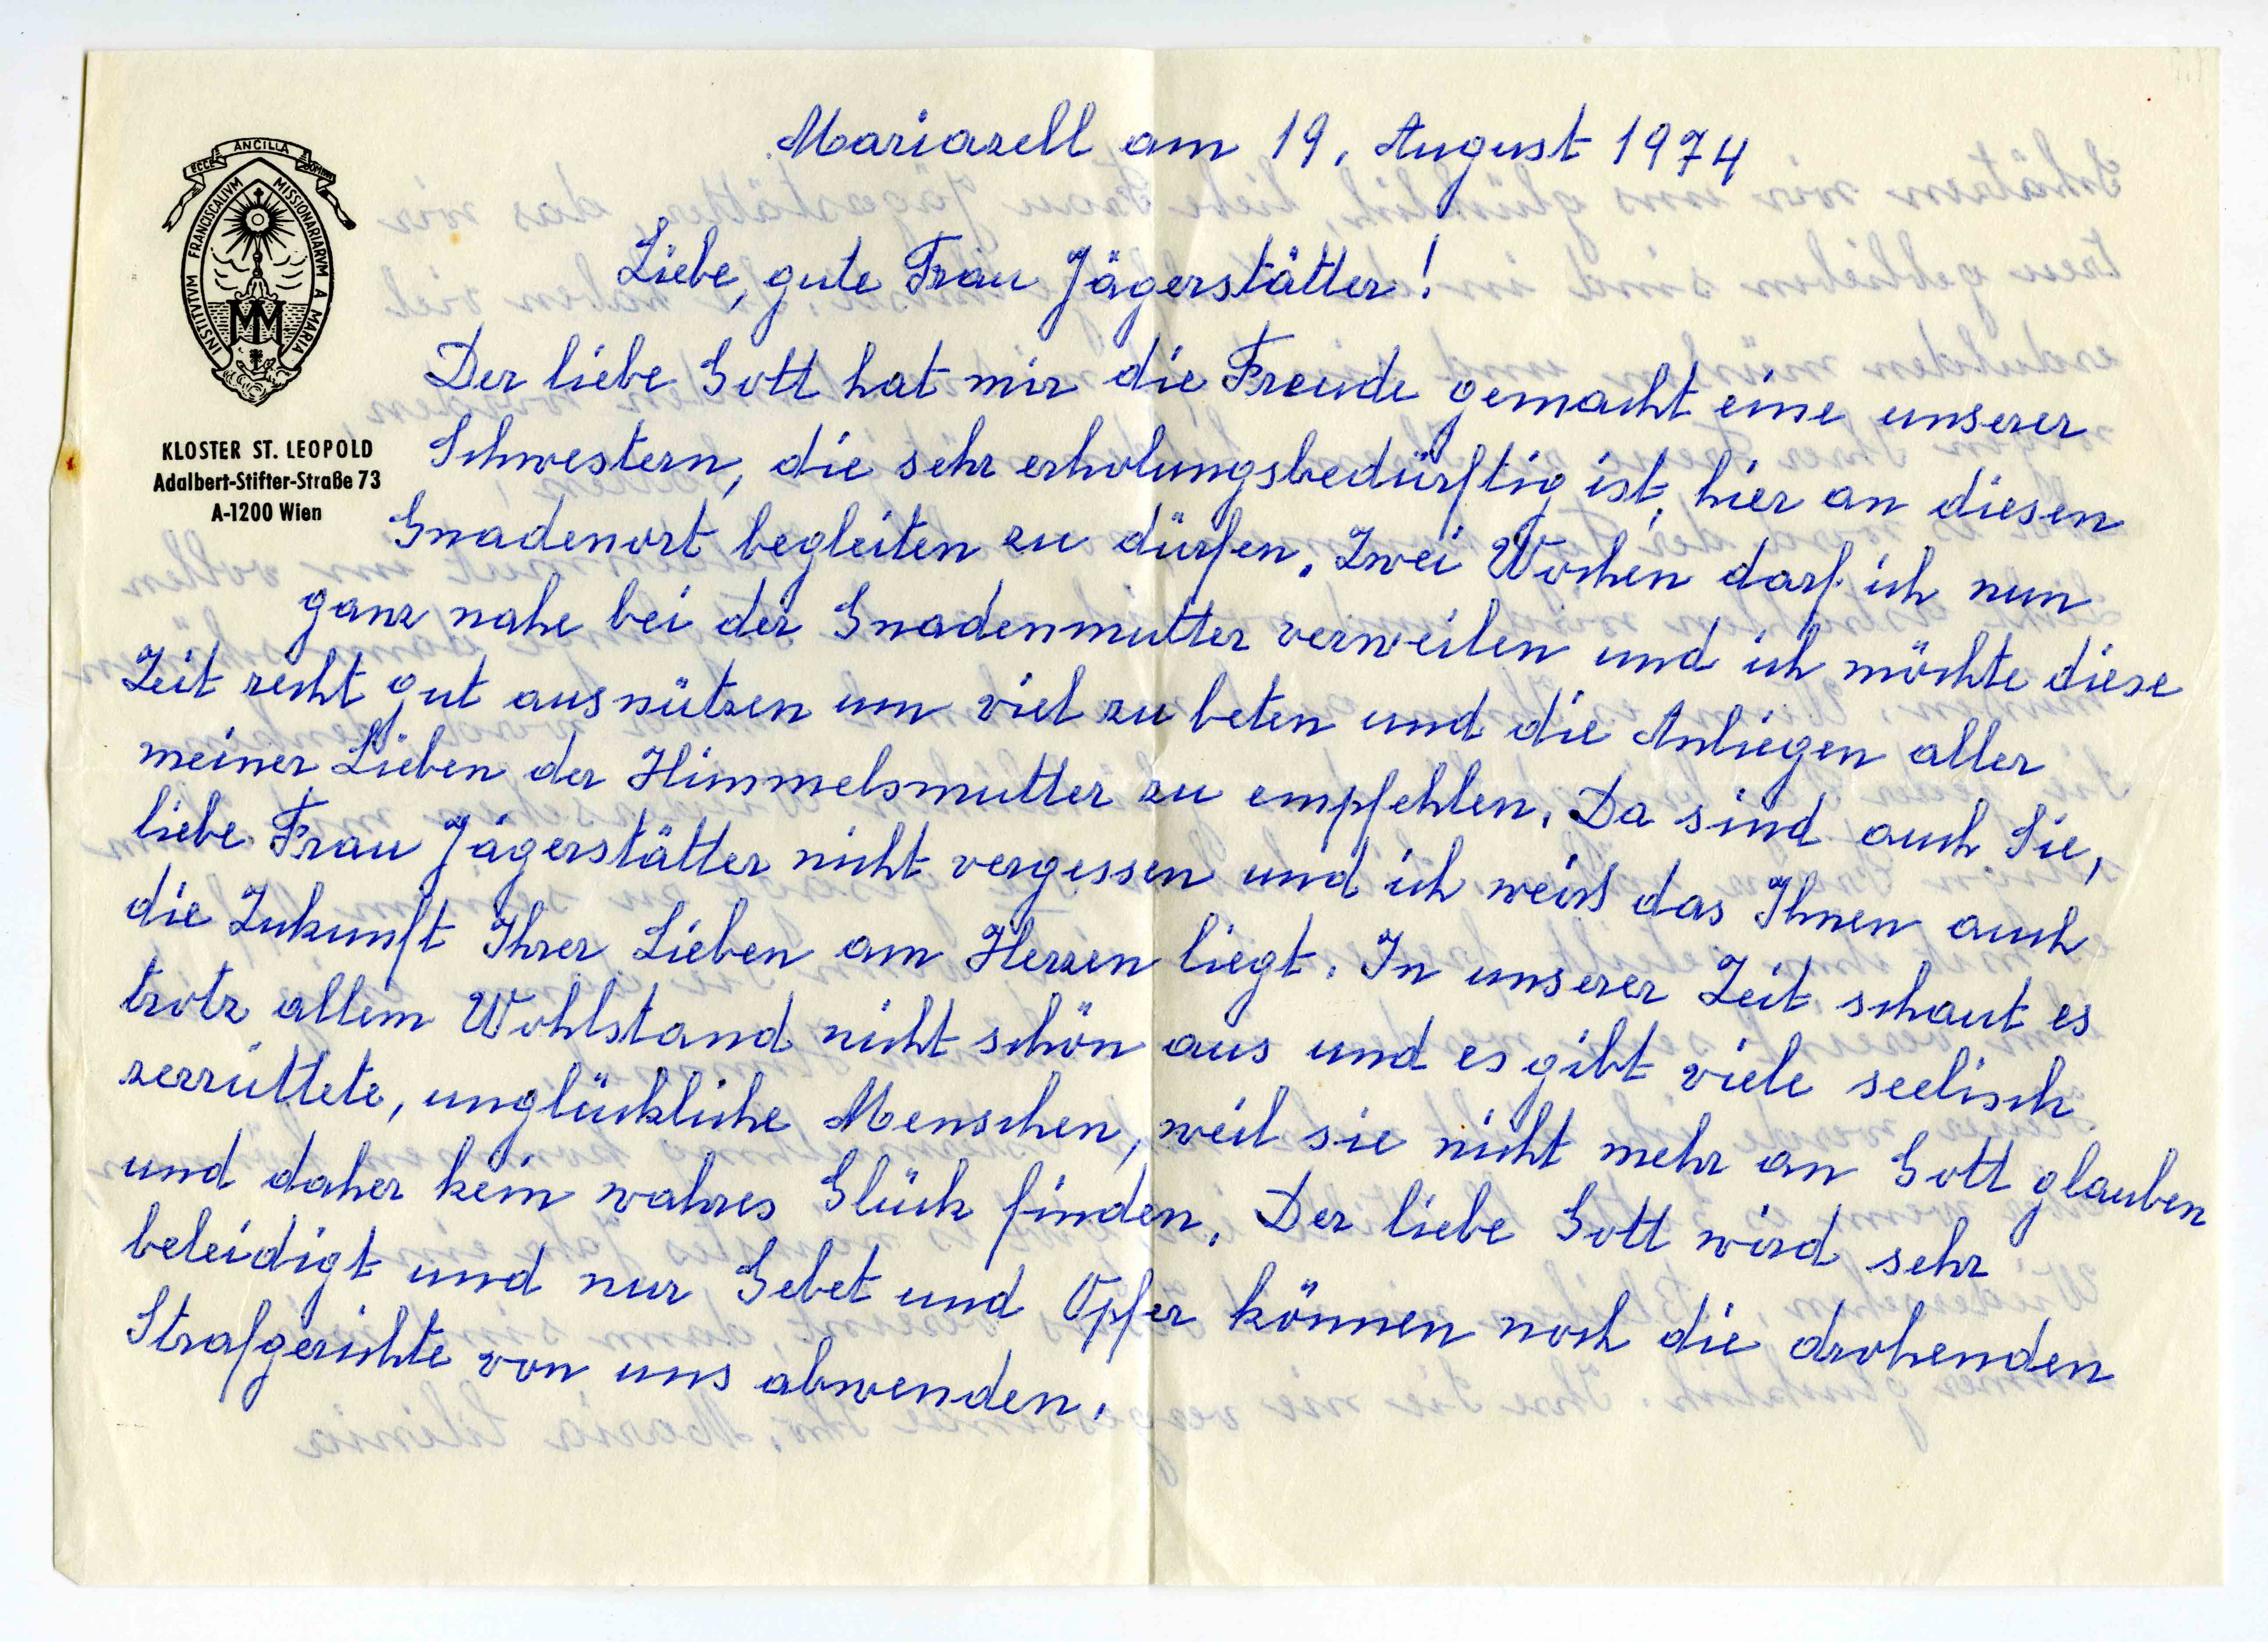 ECCE ANCILLA DOMINI
INSTITVTVM FRANCISCALIVM MISSIONARIARVM A MARIA
MM
KLOSTER ST. LEOPOLD
Adalbert-Stifter-Straße 73
A-1200 Wien
Mariazell am 19. August 1974
Liebe, gute Frau Jägerstätter!
Der liebe Gott hat mir die Freude gemacht eine unserer
Schwestern, die sehr erholungsbedürftig ist, hier an diesen
Gnadenort begleiten zu dürfen. Zwei Wochen darf ich nun
ganz nahe bei der Gnadenmutter verweilen und ich möchte diese
Zeit recht gut ausnützen um viel zu beten und die Anliegen aller
meiner Lieben der Himmelsmutter zu empfehlen. Da sind auch Sie,
liebe Frau Jägerstätter nicht vergessen und ich weiß das Ihnen auch
die Zukunft Ihrer Lieben am Herzen liegt. In unserer Zeit schaut es
trotz allem Wohlstand nicht schön aus und es gibt viele seelisch
zerrüttete, unglückliche Menschen, weil sie nicht mehr an Gott glauben
und daher kein wahres Glück finden. Der liebe Gott wird sehr
beleidigt und nur Gebet und Opfer können noch die drohenden
Strafgerichte von uns abwenden.